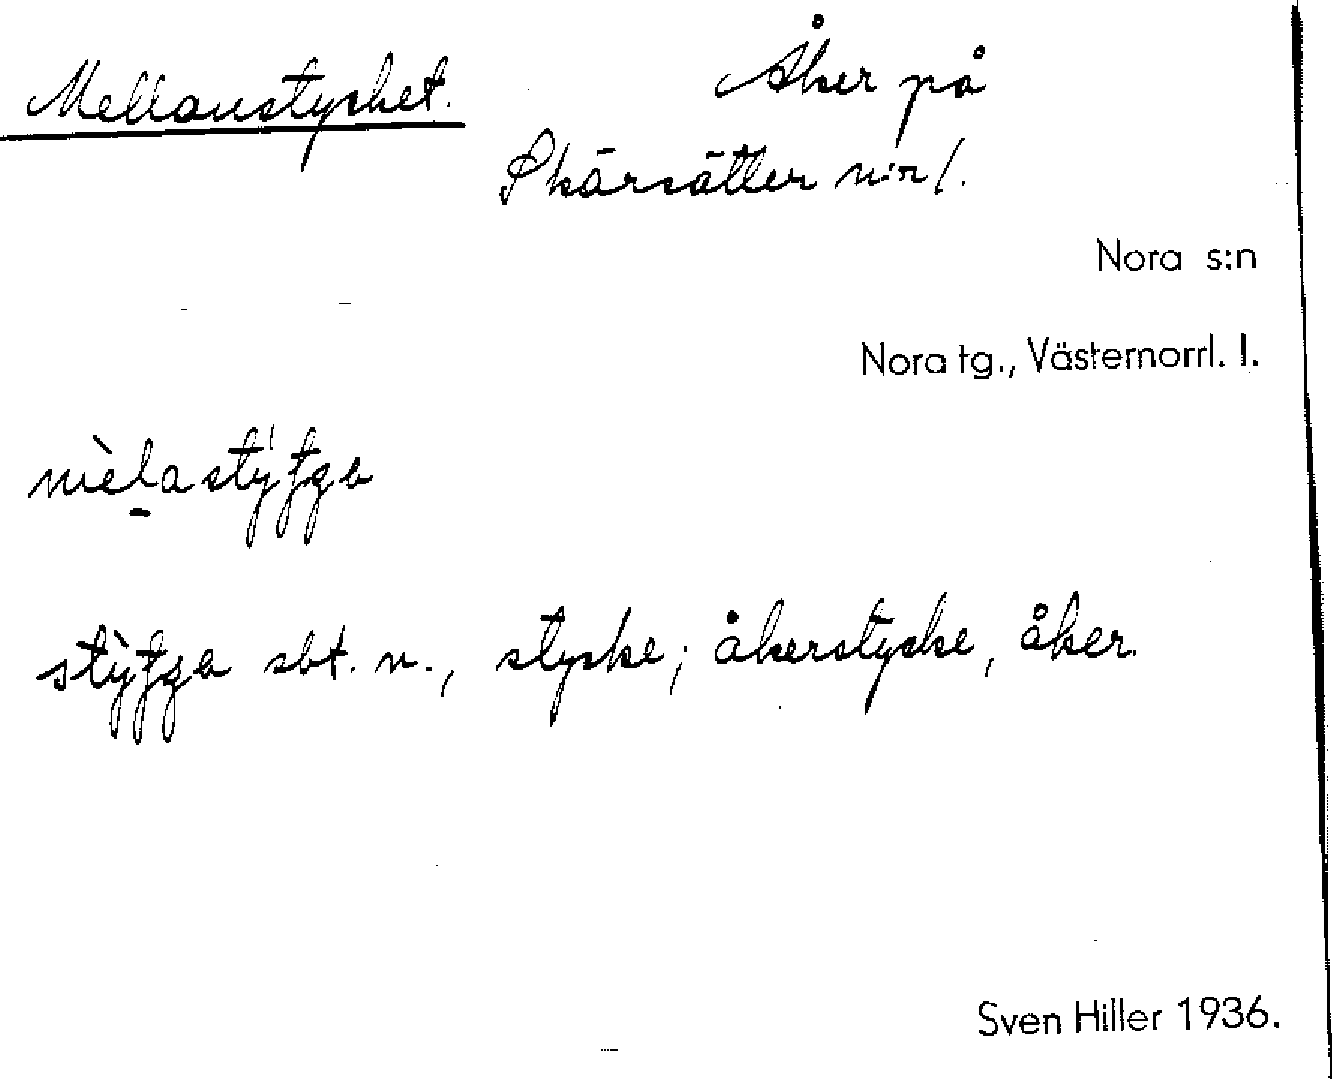 Mellanstycket. Åker på
Skärsätter n:r 1.
Nora s:n
Nora tg., Västernorrl. l.
sbt. n., stycke; åkerstycke, åker
Sven Hiller 1936.